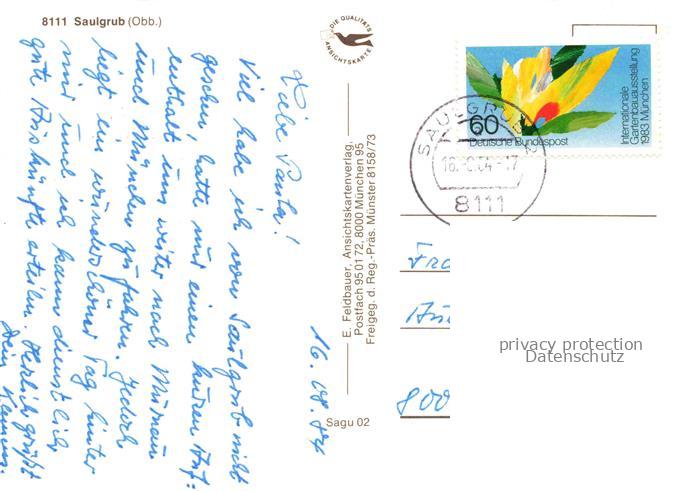 8111 Saulgrub (Obb.)
DIE QUALITÄTS
ANSICHTSKARTE
Liebe Paula!
Viel habe ich von Saulgrub nicht
gesehen, hatte nur einen kurzen Auf-
enthalt um weiter nach Murnau
und München zu fahren. Jedoch
liegt ein wunderschöner Tag hinter
mir und ich kann dienstlich
gute Auskünfte erteilen. Herzlich grüßt
Dein
16.08.84
E. Feldbauer, Ansichtskartenverlag,
Postfach 95 01 72, 8000 München 95
Freigeg. d. Reg.-Präs. Münster 8158/73
Sagu 02
60
Deutsche Bundespost
Internationale
Gartenbauausstellung
1983 München
SAULGRUB
8111
800
privacy protection
Datenschutz